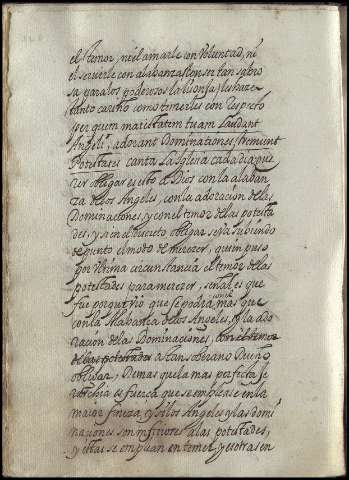 el temor, ni el amarle con Voluntad, ni
el seruirle con alabanzas son en tan glorio
sa para los poderosos la lisonja, les haze
tanto cariño como temerles con respeto
per quem maiestatem tuam Laudant
Angeli, adorant Dominationes, tremunt
Potestates canta la Iglesia cada dia que
rer obligar es esto a Dios con la alaban
za de los Angeles, con la adoracion de las
Dominaciones, y con el temor de las potesta
des, y si en el discreto obligar se ha subiendo
de punto el modo de merezer, quien puso
por Vltima circunstancia el temor de las
potestades para merezer, señal es que
fue porque vio que se podra mas que
con la Alabanza de los Angeles, y la ado
racion de las Dominaciones, con el temor
de las potestades a tan soberano Dueño
obligar, Demas que la mas perfecta je
rarchia es fuerza que se emplee en la
maior fineza, y si los Angeles y las domi
naciones son inferiores a las potestades,
y estas se emplean en temer, y esotras en